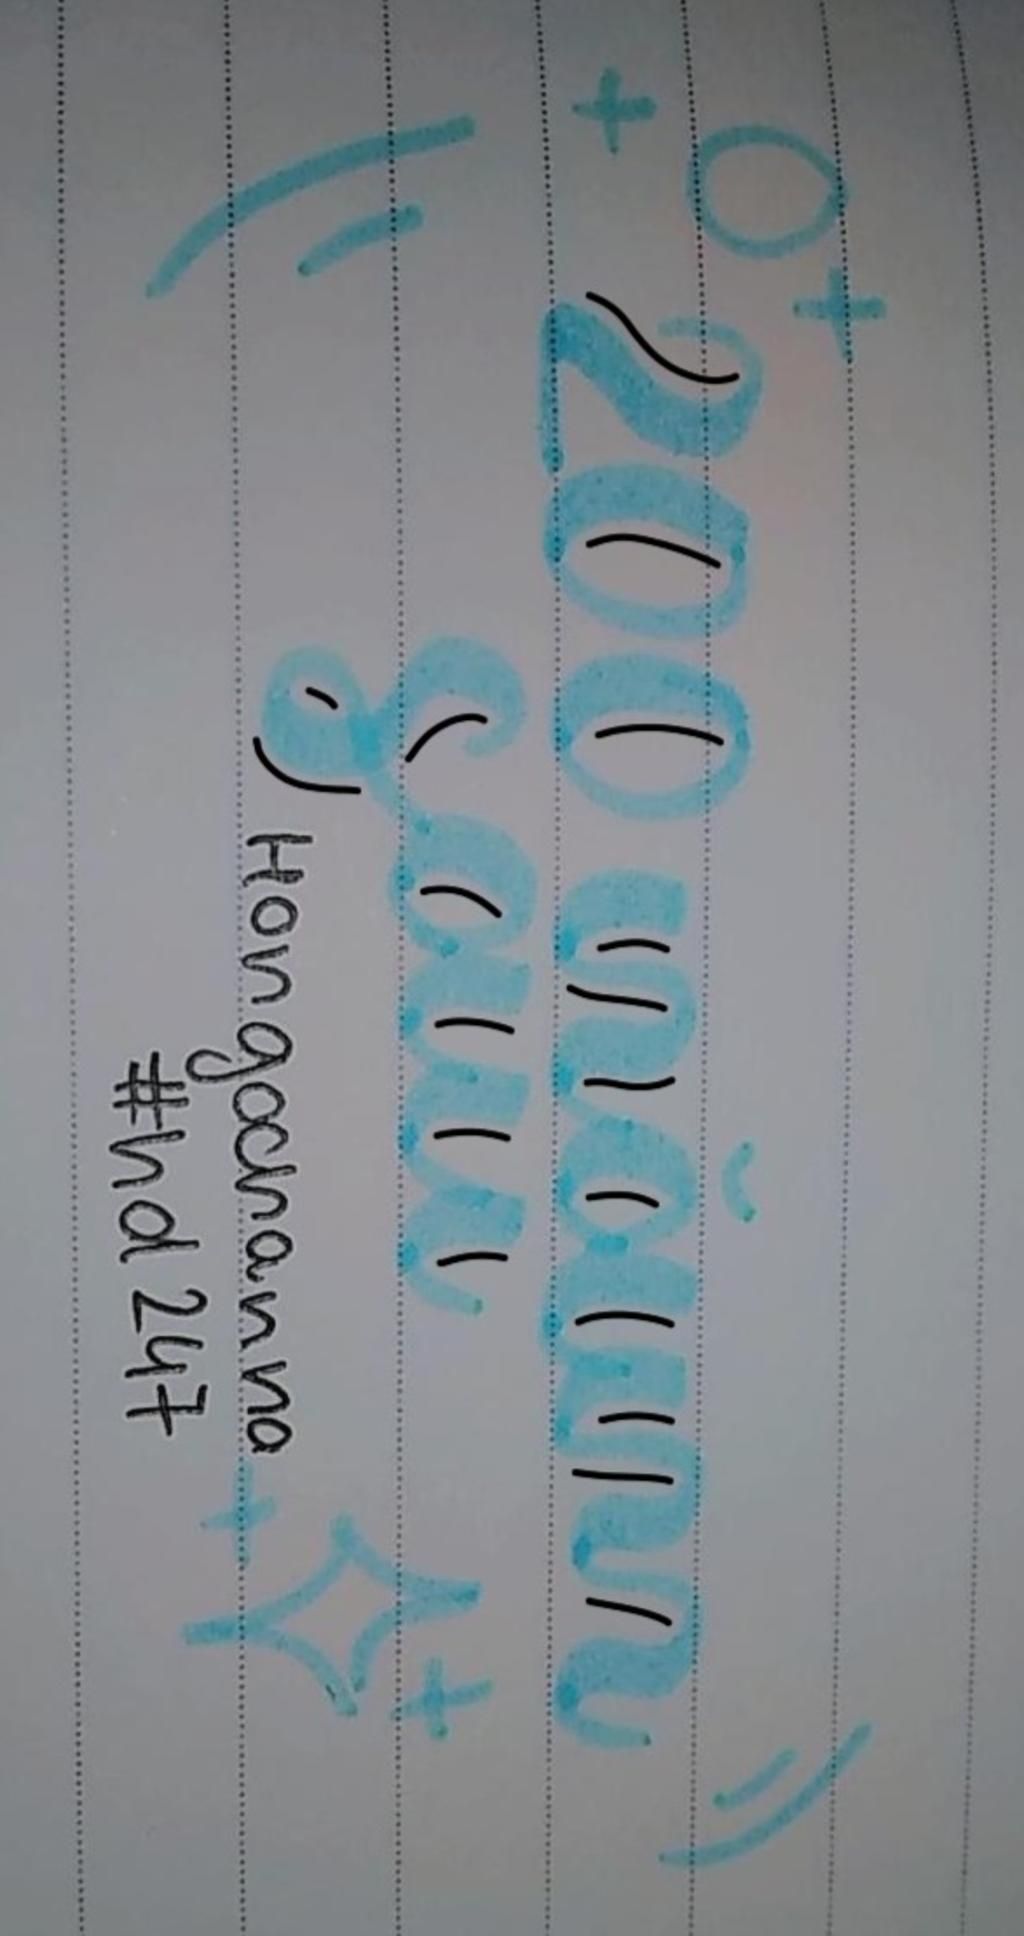 2000 năm
sau
Hongocnanna
#hd247